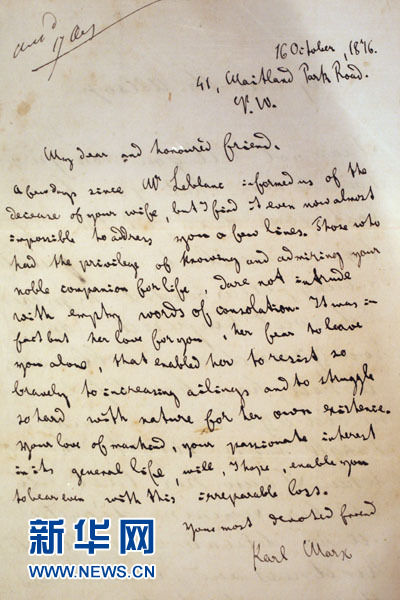 ans'd
17 Oct
16 October, 1876.
41, Maitland Park Road.
N. W.
My dear and honoured friend.
A few days since Mr Leblanc informed us of the
decease of your wife, but I find it even now almost
impossible to address you a few lines. Those who
had the privilege of knowing and admiring your
noble companion for life, dare not intrude
with empty words of consolation. It was in
fact but her love for you, her fear to leave
you alone, that enabled her to resist so
bravely to increasing ailings and to struggle
so hard with nature for her own existence.
Your love of mankind, your passionate interest
in its general life, will, I hope, enable you
to bear even with this irreparable loss.
Your most devoted friend
Karl Marx
新华网
WWW.NEWS.CN